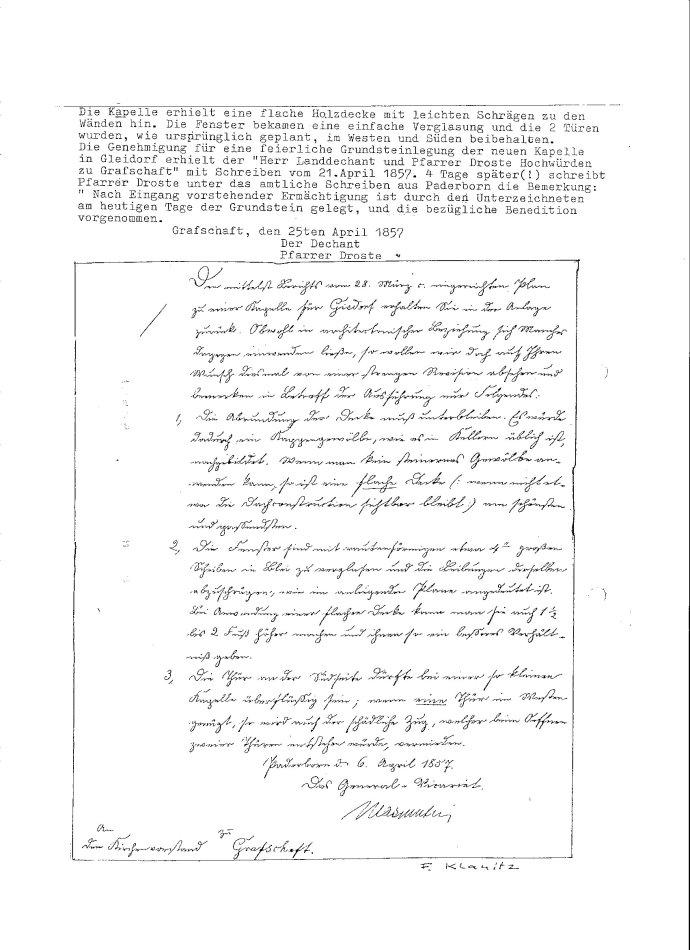 Die Kapelle erhielt eine flache Holzdecke mit leichten Schrägen zu den
Wänden hin. Die Fenster bekamen eine einfache Verglasung und die 2 Türen
wurden, wie ursprünglich geplant, im Westen und Süden beibehalten.
Die Genehmigung für eine feierliche Grundsteinlegung der neuen Kapelle
in Gleidorf erhielt der "Herr Landdechant und Pfarrer Droste Hochwürden
zu Grafschaft" mit Schreiben vom 21.April 1857. 4 Tage später(!) schreibt
Pfarrer Droste unter das amtliche Schreiben aus Paderborn die Bemerkung:
" Nach Eingang vorstehender Ermächtigung ist durch den Unterzeichneten
am heutigen Tage der Grundstein gelegt, und die bezügliche Benedition
vorgenommen.
Grafschaft, den 25ten April 1857
Der Dechant
Pfarrer Droste
Den mittelst Berichts vom 28. März c. eingereichten Plan
zu einer Kapelle für erhalten Sie in der Anlage
zurück. Obwohl in architektonischer Beziehung sich Manches
dagegen einwenden ließe, so wollen wir doch auf Ihren
Wunsch diesmal von einer strengen Revision absehen und
bemerken in Betreff der Ausführung nur Folgendes:
1, Die Abrundung der Decke muß unterbleiben. Es würde
dadurch ein Kappengewölbe, wie es in Kellern üblich ist,
nachgebildet. Wenn man kein steinernes Gewölbe an-
wenden kann, so ist eine flache Decke (: wenn nicht et-
wa die Dachconstruction sichtbar bleibt:) am schönsten
und passendsten.
2, Die Fenster sind mit rautenförmigen etwa 4" großen
Scheiben in Blei zu verglasen und die Leibungen derselben
abzuschrägen, wie im anliegenden Plane angedeutet ist.
Bei Anwendung einer flachen Decke kann man sie auch 1 ½
bis 2 Fuß höher machen und ihnen so ein besseres Verhält-
niß geben.
3, Die Thür an der Südseite dürfte bei einer so kleinen
Kapelle überflüssig sein; wenn eine Thür im Westen
genügt, so wird auch der schädliche Zug, welcher beim Oeffnen
zweier Thüren entstehen würde, vermieden.
Paderborn d. 6. April 1857.
Das General-Vicariat.
An
den Kirchenvorstand zu Grafschaft.
F. Klanitz